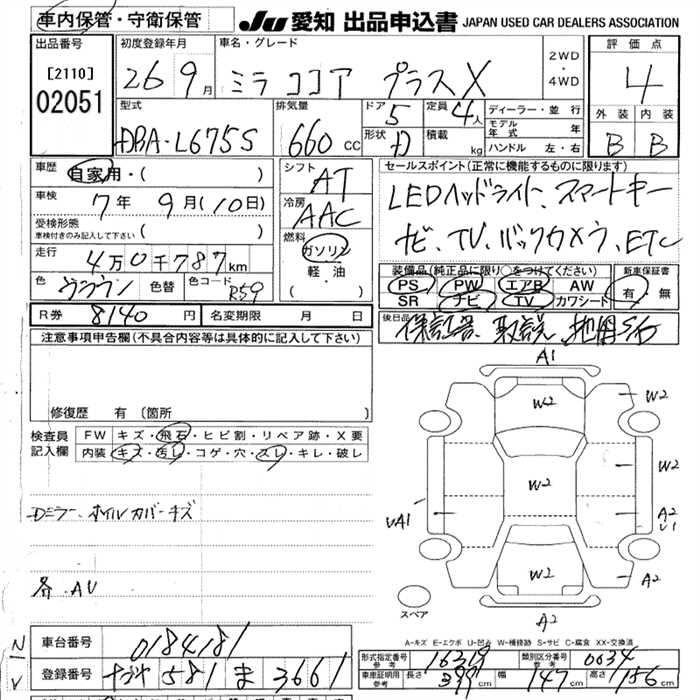 車内保管・守衛保管
JU 愛知 出品申込書 JAPAN USED CAR DEALERS ASSOCIATION
出品番号
[2110]
02051
初度登録年月
26 9月
車名・グレード
ミラ ココア プラスX
2WD・4WD
評価点
4
外装 内装
B B
型式
DBA-L675S
排気量
660 CC
ドア 5
形状 D
定員 4人
積載 kg
ディーラー・並行
モデル年式 年
ハンドル 左・右
車歴
自家用・( )
車検 7年 9月(10日)
受検形態
車検付きのみ記入して下さい ( )
走行 4万0千787km
色 ブラウン 色替 色コード R59
シフト
AT
冷房
AAC
燃料
ガソリン
軽油
( )
セールスポイント(正常に機能するものに限ります)
LEDヘッドライト、スマートキー
ナビ、TV、バックカメラ、ETC
装備品(純正品に限り○をつけてください)
PS PW エアB AW
SR ナビ TV カワシート
新車保証書
有 無
R券 8140円 名変期限 月 日
後日品 保証書、取説、
注意事項申告欄(不具合内容等は具体的に記入して下さい)
修復歴 有(箇所
検査員記入欄
FW キズ・飛石・ヒビ割・リペア跡・X要
内装 キズ・汚レ・コゲ・穴・スレ・キレ・破レ
Dミラー、ホイルカバーキズ
各、AU
A1
W2 W2
W2 W2
UA1 A2
U1
W2 A2
A2
スペア
A-キズ E-エクボ U-凹凸 W-補修跡 S-サビ C-腐食 XX-交換済
N/V
車台番号 0184181
登録番号 581 ま 3661
形式指定番号 参考 16319
類別区分番号 参考 0034
車庫証明用 参考 長さ 339cm 幅 147cm 高さ 156cm